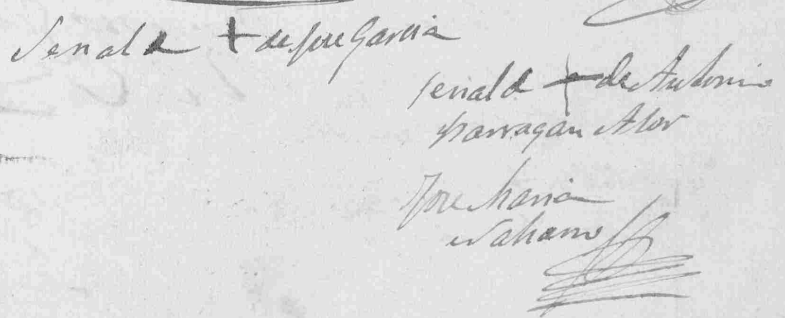 Senal d + de Jose Garcia
senal d + de Antonio
Barragan Alor
Jose Maria